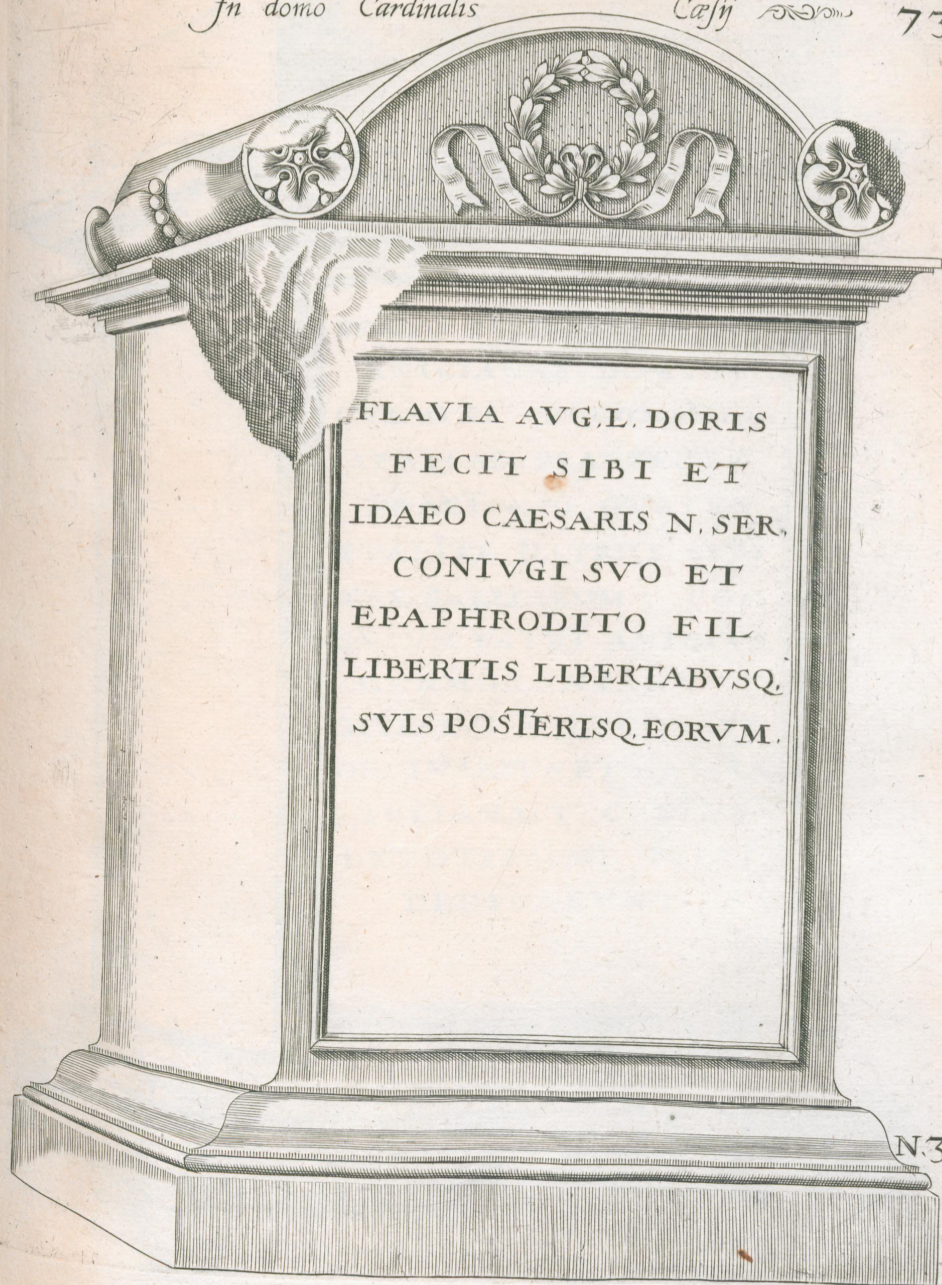 In domo Cardinalis Cæsij 73
FLAVIA AVG. L. DORIS
FECIT SIBI ET
IDAEO CAESARIS N. SER.
CONIVGI SVO ET
EPAPHRODITO FIL
LIBERTIS LIBERTABVSQ.
SVIS POSTERISQ. EORVM.
N. 3